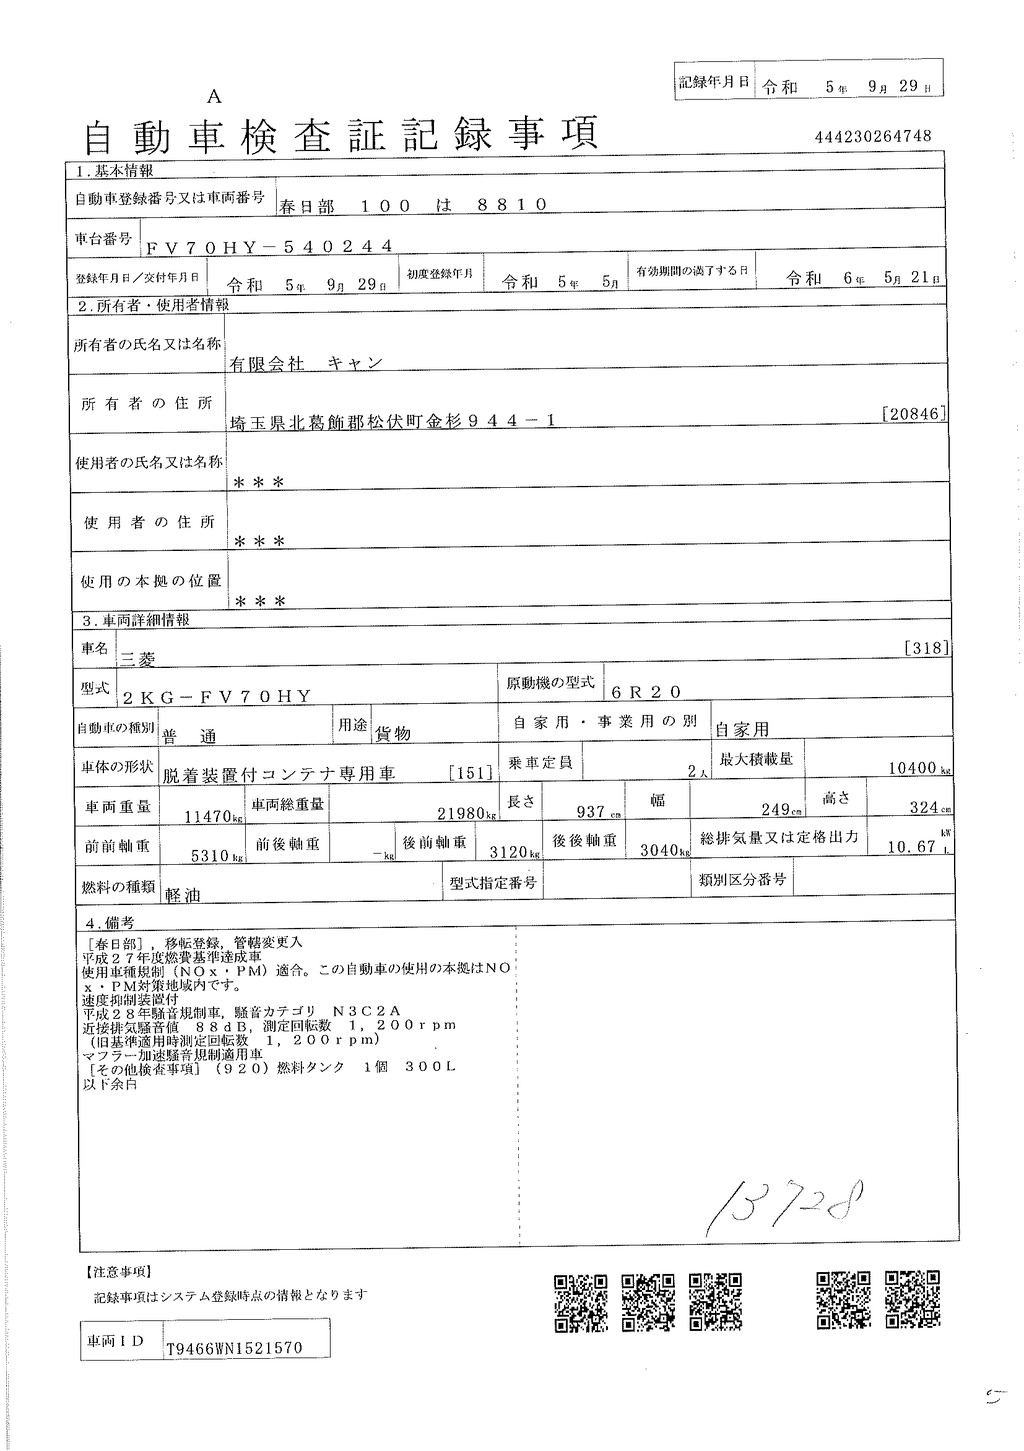 記録年月日 令和 5年 9月 29日
A
自動車検査証記録事項 444230264748
1.基本情報
自動車登録番号又は車両番号 春日部 100 は 8810
車台番号 FV70HY-540244
登録年月日/交付年月日 令和 5年 9月 29日 初度登録年月 令和 5年 5月 有効期間の満了する日 令和 6年 5月 21日
2.所有者・使用者情報
所有者の氏名又は名称 有限会社 キャン
所有者の住所 埼玉県北葛飾郡松伏町金杉944-1 [20846]
使用者の氏名又は名称 ***
使用者の住所 ***
使用の本拠の位置 ***
3.車両詳細情報
車名 三菱 [318]
型式 2KG-FV70HY 原動機の型式 6R20
自動車の種別 普通 用途 貨物 自家用・事業用の別 自家用
車体の形状 脱着装置付コンテナ専用車 [151] 乗車定員 2人 最大積載量 10400kg
車両重量 11470kg 車両総重量 21980kg 長さ 937cm 幅 249cm 高さ 324cm
前前軸重 5310kg 前後軸重 -kg 後前軸重 3120kg 後後軸重 3040kg 総排気量又は定格出力 10.67 kW L
燃料の種類 軽油 型式指定番号 類別区分番号
4.備考
[春日部],移転登録,管轄変更入
平成27年度燃費基準達成車
使用車種規制(NOx・PM)適合。この自動車の使用の本拠はNO
x・PM対策地域内です。
速度抑制装置付
平成28年騒音規制車,騒音カテゴリ N3C2A
近接排気騒音値 88dB,測定回転数 1,200rpm
(旧基準適用時測定回転数 1,200rpm)
マフラー加速騒音規制適用車
[その他検査事項](920)燃料タンク 1個 300L
以下余白
13728
【注意事項】
記録事項はシステム登録時点の情報となります
車両ID T9466WN1521570